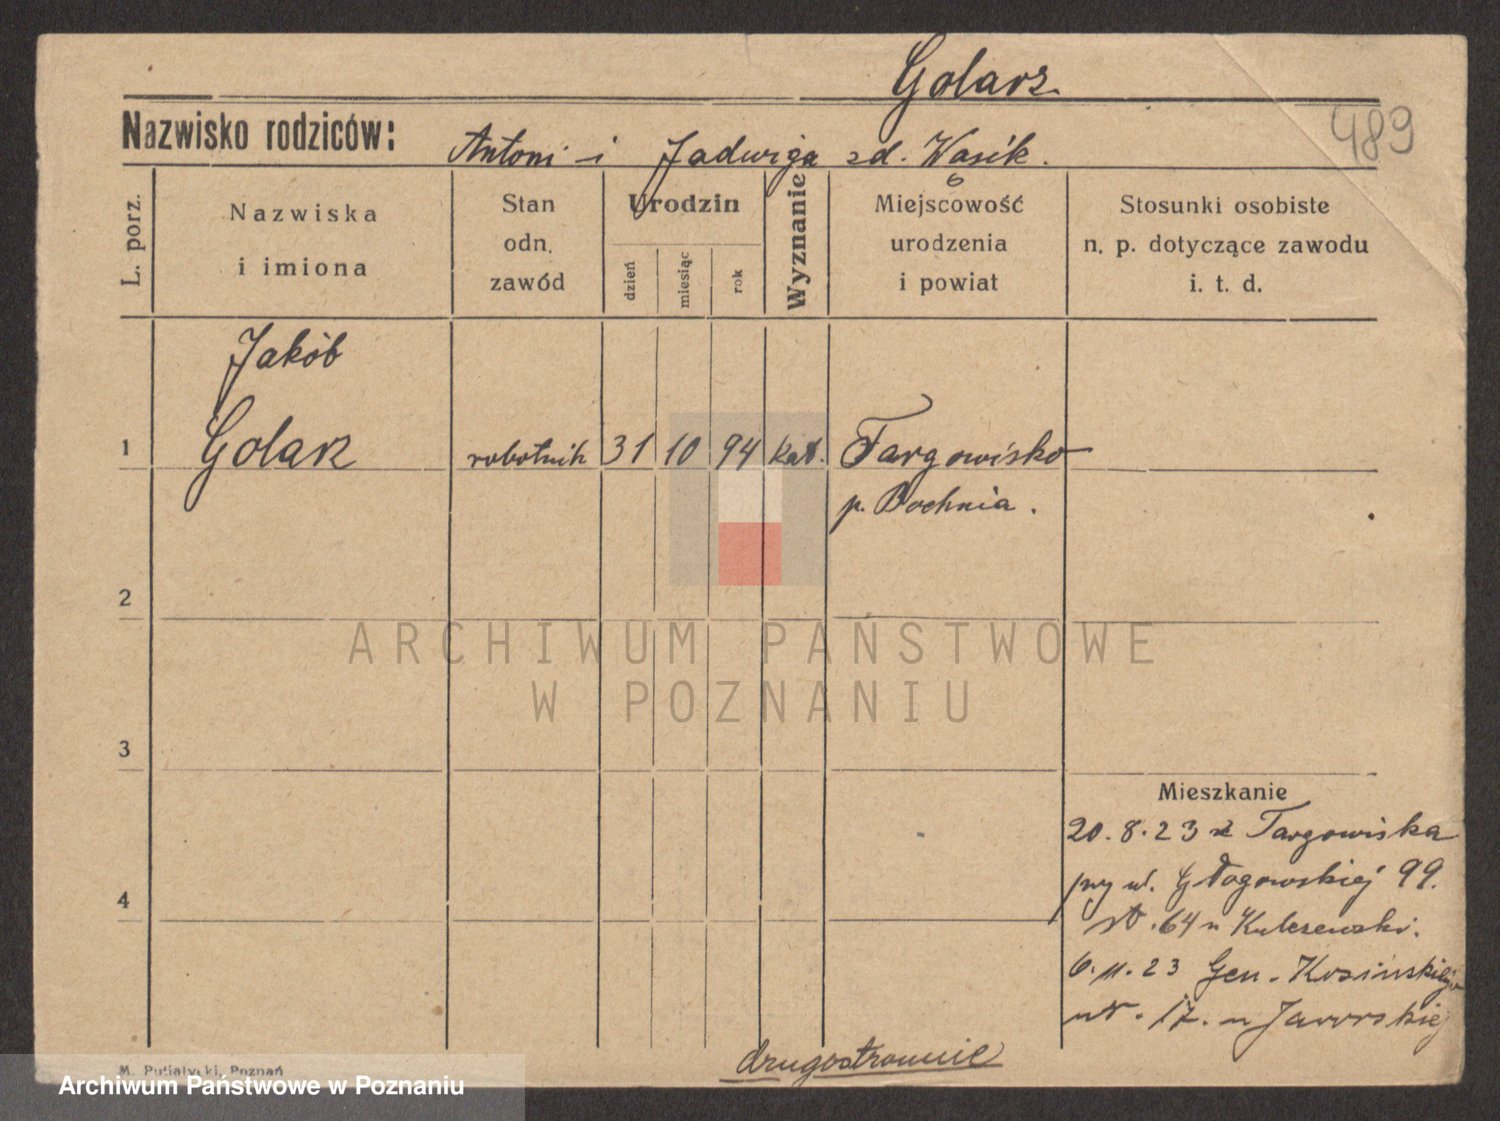 Golarz
489
Nazwisko rodziców: Antoni i Jadwiga zd. Wasik.
L. porz.
Nazwiska
i imiona
Stan
odn.
zawód
Urodzin
dzień
miesiąc
rok
Wyznanie
Miejscowość
urodzenia
i powiat
Stosunki osobiste
n. p. dotyczące zawodu
i. t. d.
Jakób
1 Golarz robotnik 31 10 94 kat. Targowisko
p. Bochnia.
2
3
4
Mieszkanie
20.8.23 z Targowiska
przy ul. Głogowskiej 99.
64 u
6.11.23 Gen. Kosińskiej
17. u Jaworskiej
drugostronnie
M. Putiatycki, Poznań
ARCHIWUM PAŃSTWOWE
W POZNANIU
Archiwum Państwowe w Poznaniu